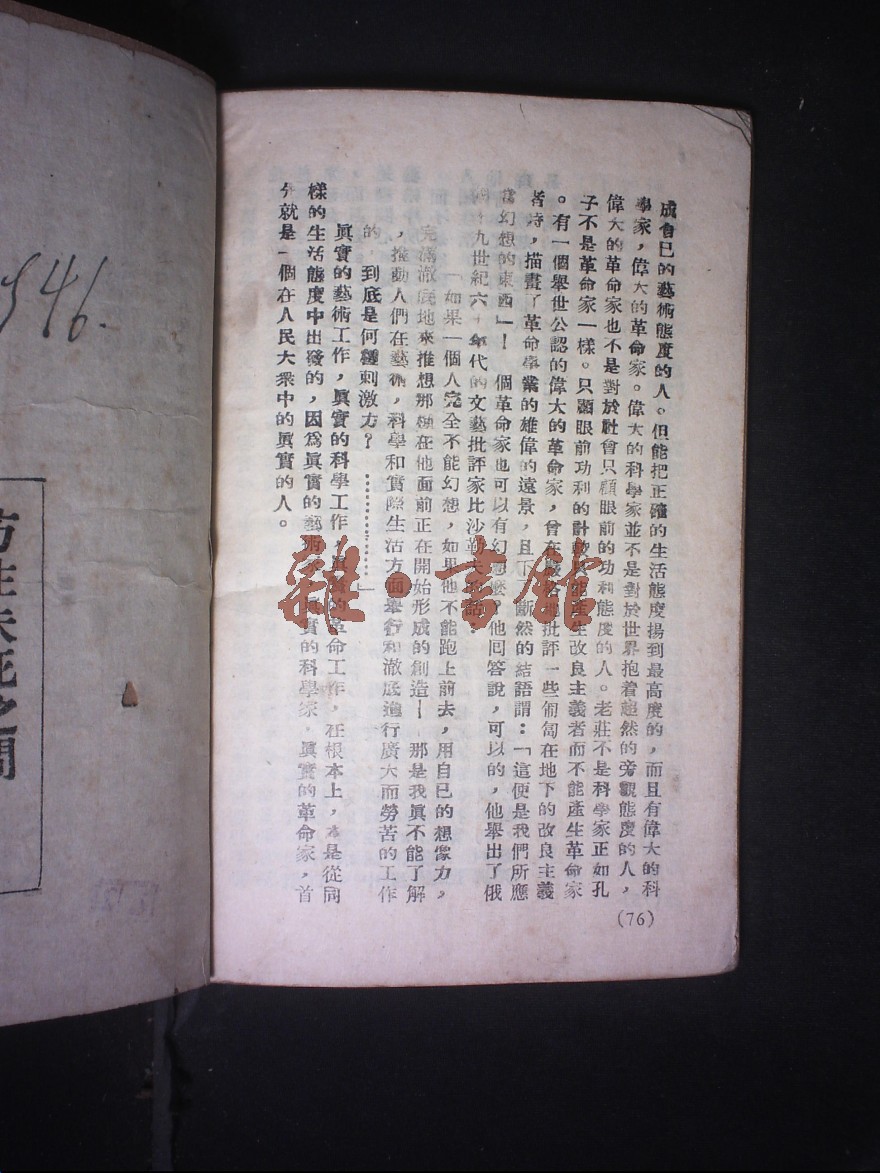 成會已的藝術態度的人。但能把正確的生活態度揚到最高度的，而且有偉大的科
學家，偉大的革命家。偉大的科學家並不是對於世界抱着超然的旁觀態度的人，
偉大的革命家也不是對於社會只顧眼前的功利態度的人。老莊不是科學家正如孔
子不是革命家一樣。只顧眼前功利的計較只能產生改良主義者而不能產生革命家
。有一個舉世公認的偉大的革命家，曾在嚴格地批評一些匍匐在地下的改良主義
者時，描畫了革命事業的雄偉的遠景，且下斷然的結語謂：「這便是我們所應
當幻想的東西」！個革命家也可以有幻想麼？他回答說，可以的，他舉出了俄
九世紀六十年代的文藝批評家比沙勒夫的話：
「如果一個人完全不能幻想，如果他不能跑上前去，用自已的想像力，
完滿澈底地來推想那頗在他面前正在開始形成的創造——那是我眞不能了解
，推動人們在藝術，科學和實際生活方面舉行和澈底進行廣大而勞苦的工作
的，到底是何種刺激力？…………」
眞實的藝術工作，眞實的科學工作，眞實的革命工作，在根本上，本是從同
樣的生活態度中出發的，因爲眞實的藝術家，眞實的科學家，眞實的革命家，首
先就是一個在人民大衆中的眞實的人。
(76)
546.
方生未死之間
雜·書館